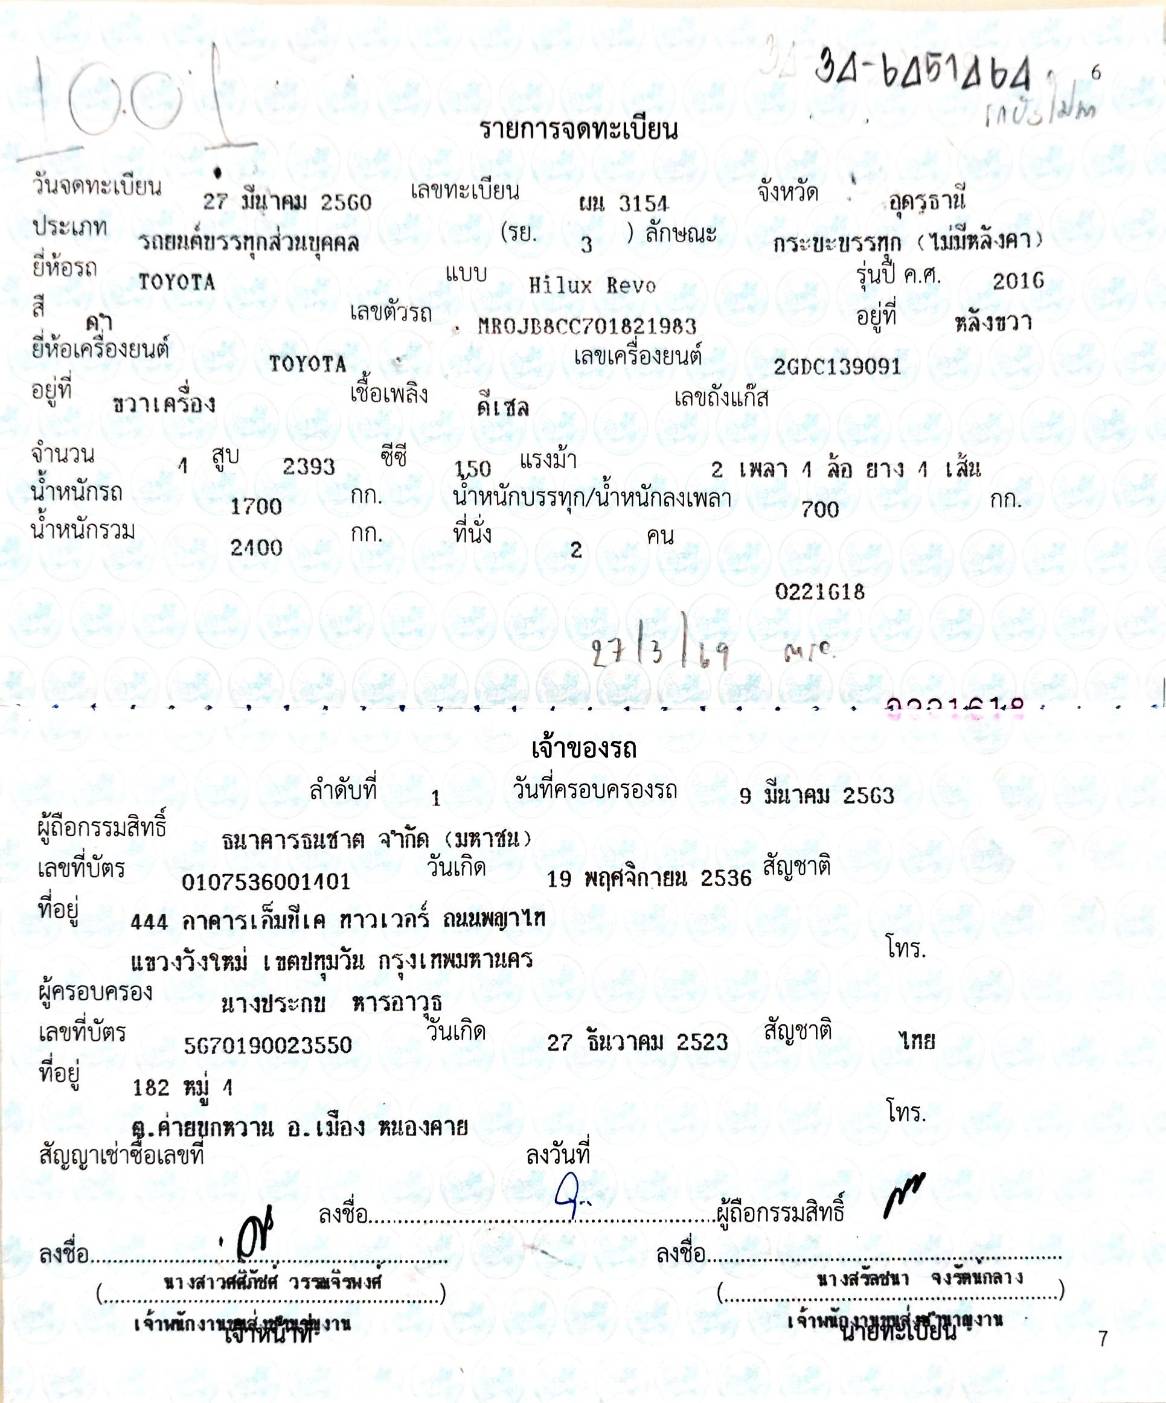 1001
3ฒ-6ฒ51464
6
รายการจดทะเบียน
วันจดทะเบียน 27 มีนาคม 2560 เลขทะเบียน ผน 3154 จังหวัด อุดรธานี
ประเภท รถยนต์บรรทุกส่วนบุคคล (รย. 3 ) ลักษณะ กระบะบรรทุก (ไม่มีหลังคา)
ยี่ห้อรถ TOYOTA แบบ Hilux Revo รุ่นปี ค.ศ. 2016
สี ดำ เลขตัวรถ MR0JB8CC701821983 อยู่ที่ หลังขวา
ยี่ห้อเครื่องยนต์ TOYOTA เลขเครื่องยนต์ 2GDC139091
อยู่ที่ ขวาเครื่อง เชื้อเพลิง ดีเซล เลขถังแก๊ส
จำนวน 4 สูบ 2393 ซีซี 150 แรงม้า 2 เพลา 4 ล้อ ยาง 4 เส้น
น้ำหนักรถ 1700 กก. น้ำหนักบรรทุก/น้ำหนักลงเพลา 700 กก.
น้ำหนักรวม 2400 กก. ที่นั่ง 2 คน
0221618
27/3/69
0221618
เจ้าของรถ
ลำดับที่ 1 วันที่ครอบครองรถ 9 มีนาคม 2563
ผู้ถือกรรมสิทธิ์ ธนาคารธนชาต จำกัด (มหาชน)
เลขที่บัตร 0107536001401 วันเกิด 19 พฤศจิกายน 2536 สัญชาติ
ที่อยู่ 444 อาคารเอ็มบีเค ทาวเวอร์ ถนนพญาไท
แขวงวังใหม่ เขตปทุมวัน กรุงเทพมหานคร โทร.
ผู้ครอบครอง นางประกบ หารอาวุธ
เลขที่บัตร 5670190023550 วันเกิด 27 ธันวาคม 2523 สัญชาติ ไทย
ที่อยู่ 182 หมู่ 4
ต.ค่ายบกหวาน อ.เมือง หนองคาย โทร.
สัญญาเช่าซื้อเลขที่ ลงวันที่
ลงชื่อ............ผู้ถือกรรมสิทธิ์
ลงชื่อ............ ลงชื่อ............
(นางสาวศศิภัชศ์ วรรณจิรพงศ์) (นางสรัลชนา จงรัตน์กลาง)
เจ้าพนักงานขนส่งชำนาญงาน เจ้าพนักงานขนส่งชำนาญงาน
เจ้าหน้าที่ นายทะเบียน
7